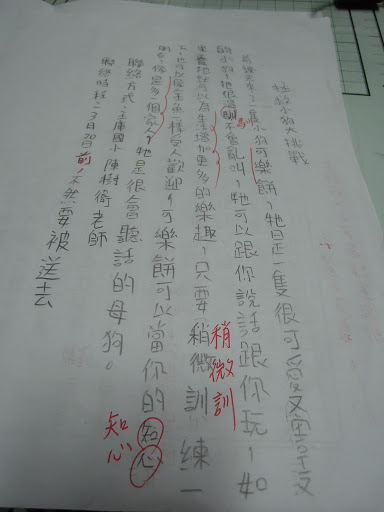 拯救小狗大挑戰
來了一隻小狗可樂餅,牠是一隻很可愛又害
的小狗,牠很溫馴不會亂叫,牠可以跟你說話跟你玩,如
馴
養牠就可以為生活加更多的樂趣,只要稍微訓練一
稍微訓
下,也可以像 一樣令人歡迎,可樂餅可以當你的知心
知心
朋友,像是多一個家人,牠是很會聽話的母狗。
聯絡方式:土庫國小陳樹衛老師
聯絡時程:12月20日前,不然要被送去